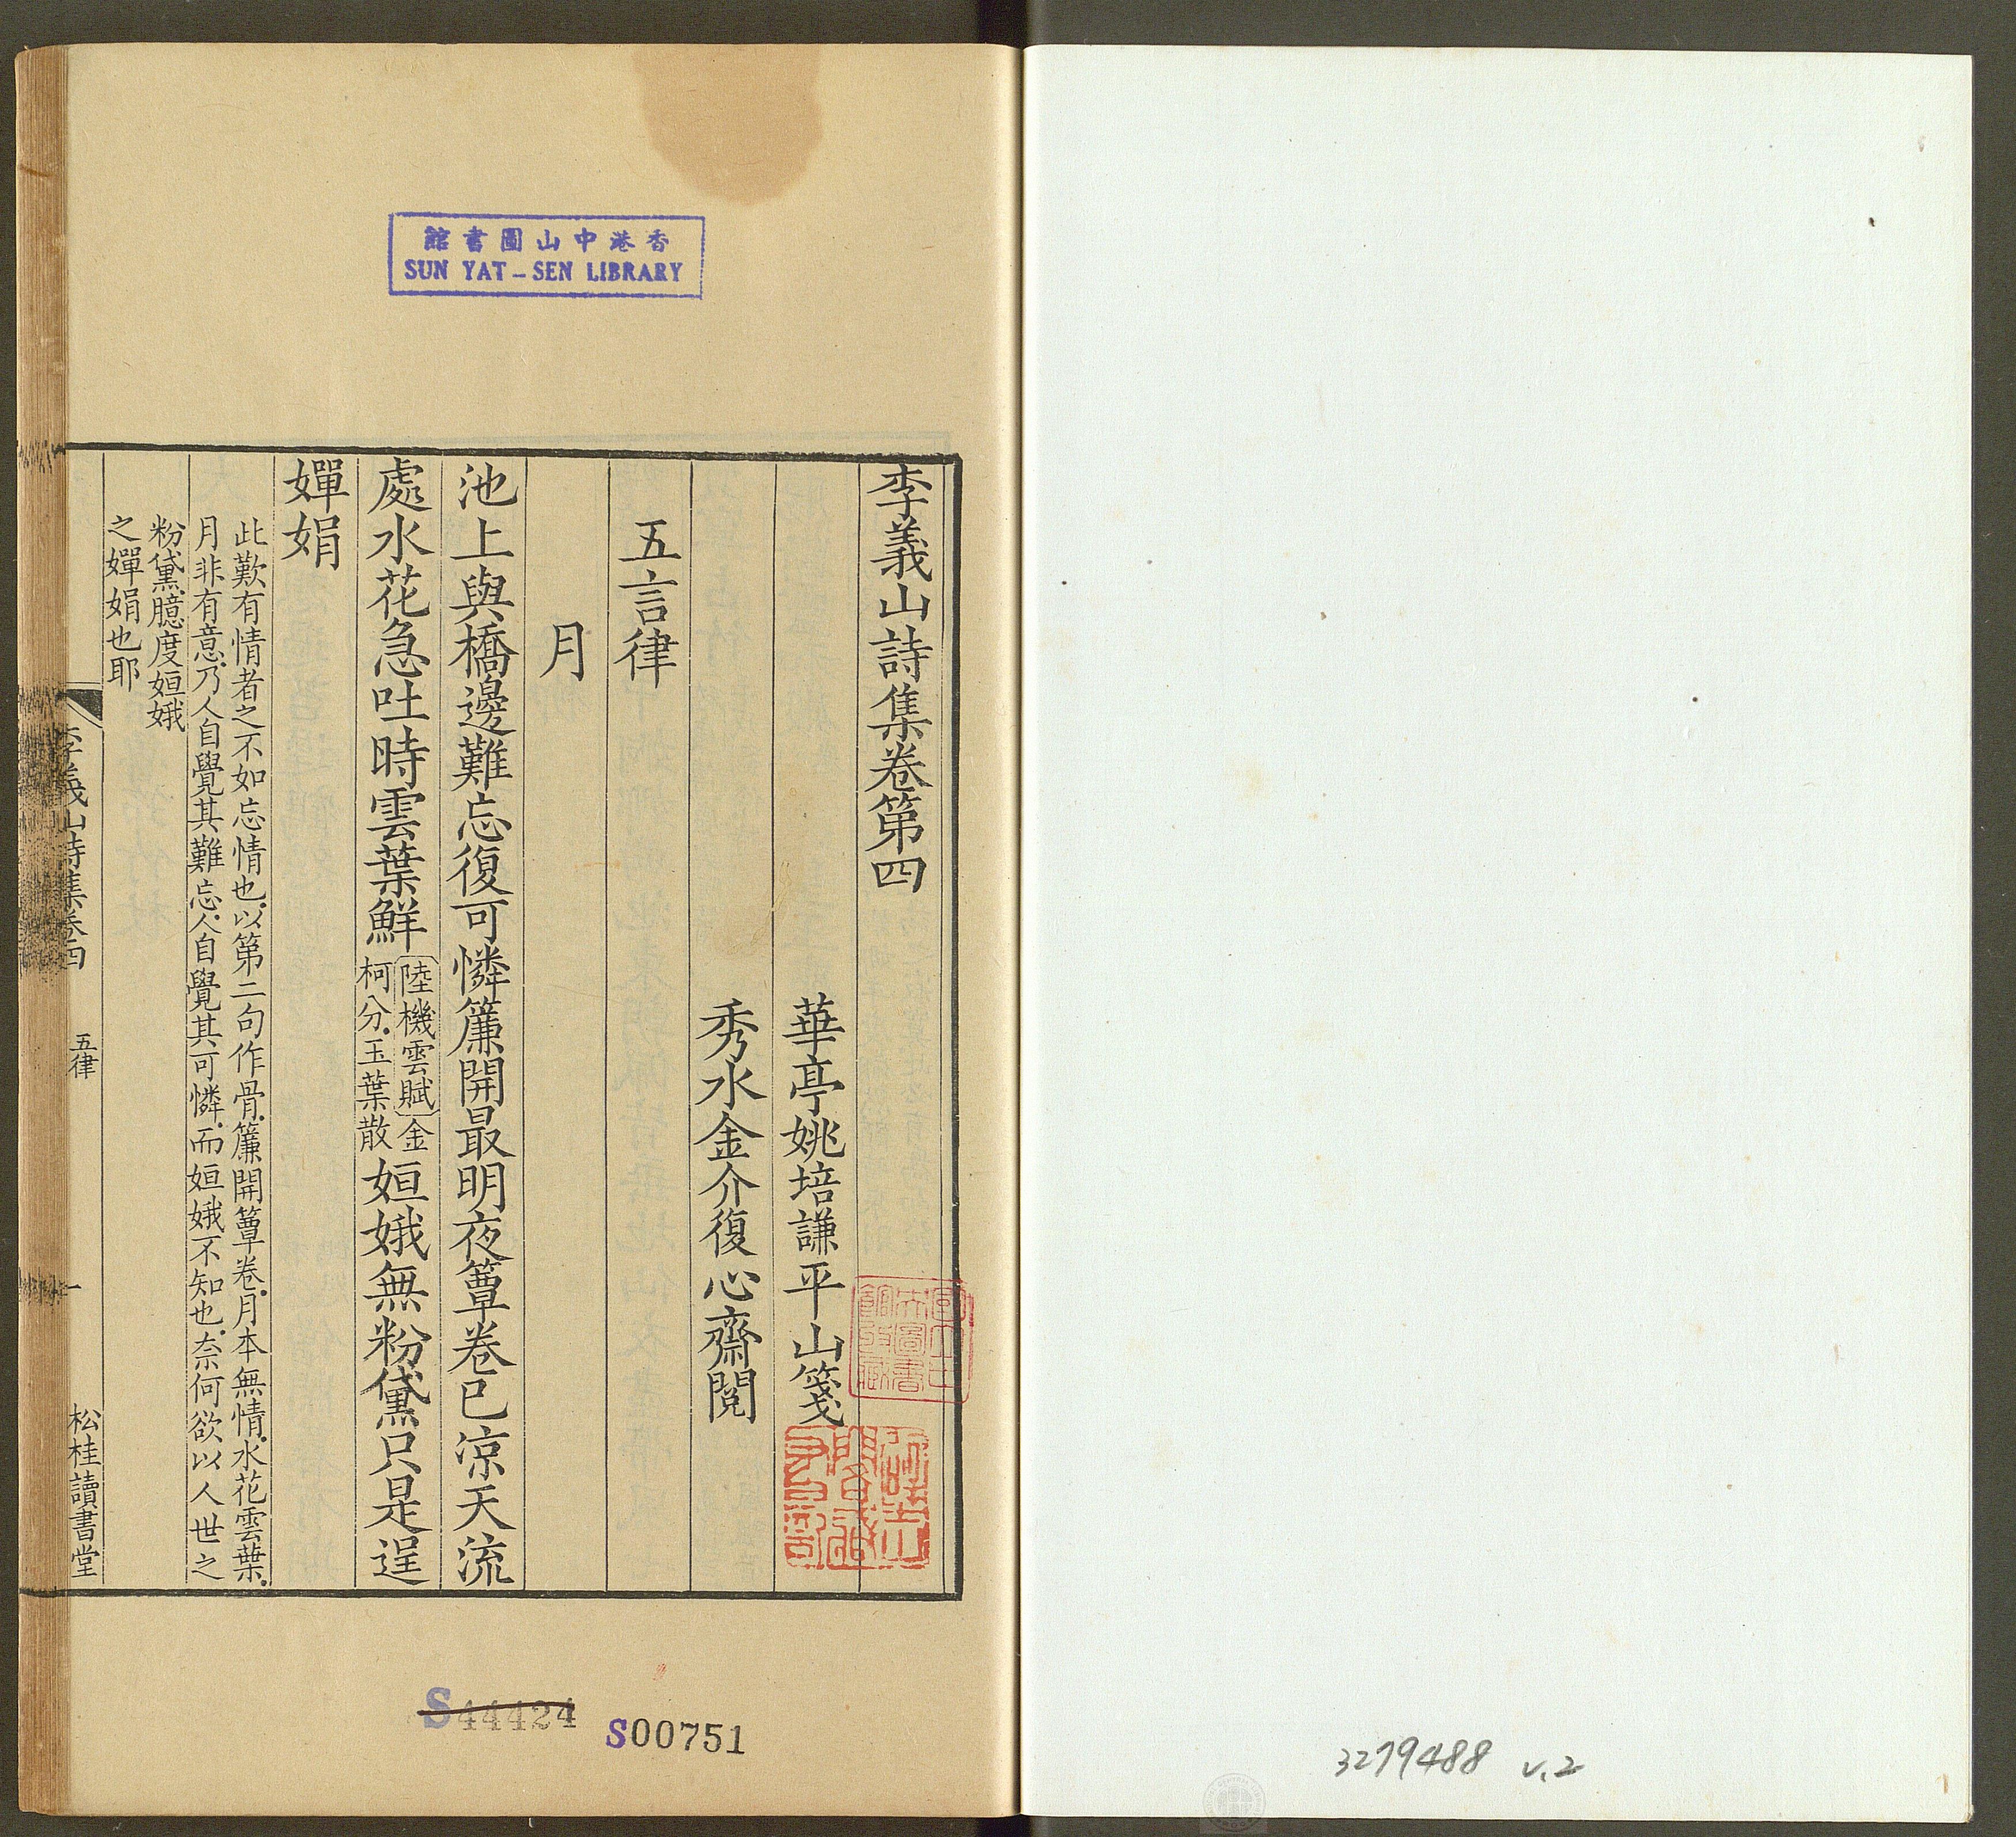 李義山詩集卷第四
華亭姚培謙平山箋
秀水金介復心齋閱
五言律
月
池上與橋邊難忘復可憐簾開最明夜簟卷已涼天流
處水花急吐時雲葉鮮
陸機雲賦金
柯分玉葉散
姮娥無粉黛只是逞
嬋娟
此歎有情者之不如忘情也.以第二句作骨.簾開簟卷.月本無情.水花雲葉.
月非有意.乃人自覺其難忘.人自覺其可憐.而姮娥不知也.奈何欲以人世之
粉黛.臆度姮娥
之嬋娟也耶
李義山詩集卷四
五律
一
松桂讀書堂
香港中山圖書館
SUN YAT-SEN LIBRARY
S44424
S00751
3279488 v.2